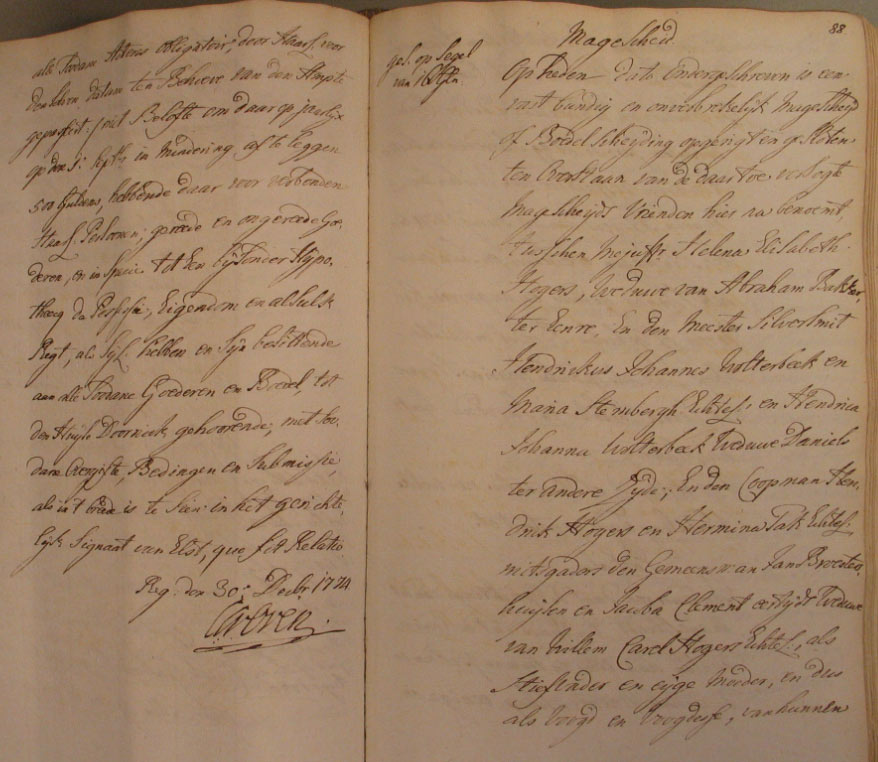 alle Sodane Actens obligatoir, door Haarl. voor
den selven datum ten Behoeve van den
geprofit: / met Belofte om daar op jaarlijx
op den 1: Sept: in mindering af te leggen
500 guldens, hebbende daar voor verbonden
Haarl. Persoonen, gereede en ongereede Goe
deren, en in Specie tot een Hypo
theecq de Possessie, Eigendom en alsulk
Regt, als Sijl. hebben en Sijn besittende
aan alle Sodane Goederen en Boedel, tot
den Huijse Doornick gehoorende, met Soo
dane Bedingen en Submissie,
als in't brede is te Sien in het gerichte
lijk Signaat van Elst, quo fit Relatio
Reg. den 30: Decbr. 1774
88.
Magescheid
ges. op Segel
van
Op heden dato ondergeschreven is een
vast bundig en onverbrekelijk Magescheijd
of Boedel Scheijding opgerigt en gesloten
ten Overstaan van de daartoe versogte
Magescheijds Vrienden hier na benoemt,
tusschen Mejuffr. Helena Elisabeth
Hogers, Weduwe van Abraham Bakker,
ter Eenre, En den Meester Silversmit
Hendrickus Johannes Wolterbeek en
Maria Stembergh Echtel: en Hendrica
Johanna Wolterbeek Weduwe Daniels
ter andere Zyde; En den Coopman Hen
drik Hogers en Hermina Tak Echtel:
mitsgaders den Gemeensman Jan Broeken
huijsen en Jacoba Clement eertijds Weduwe
van Willem Carel Hogers Echtel:, als
Stiefvader en eijge Moeder, en dus
als Voogd en Voogdesse, van hunnen